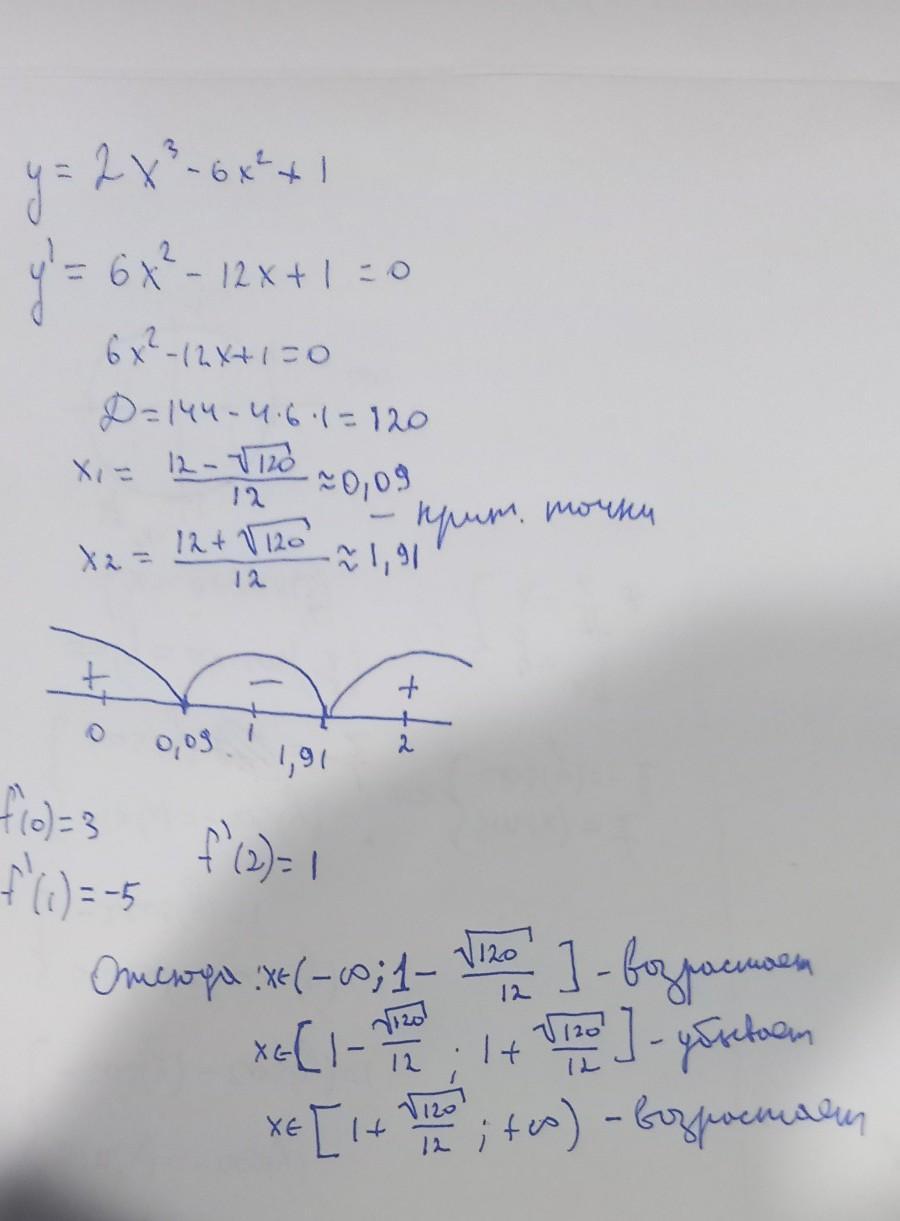 y = 2x³ - 6x² + 1
y' = 6x² - 12x + 1 = 0
6x² - 12x + 1 = 0
D = 144 - 4·6·1 = 120
x₁ = (12 - √120)/12 ≈ 0,09
- крит. точки
x₂ = (12 + √120)/12 ≈ 1,91
+ - +
0 0,09 1 1,91 2
f'(0) = 3
f'(2) = 1
f'(1) = -5
Отсюда: x∈(-∞; 1 - √120/12] - возрастает
x∈[1 - √120/12; 1 + √120/12] - убывает
x∈[1 + √120/12; +∞) - возрастает